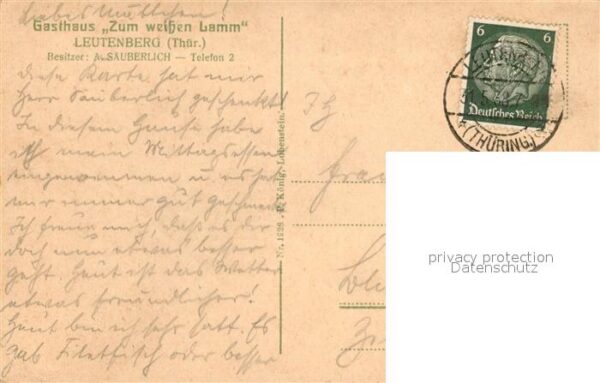 Liebes Muttchen!
Gasthaus „Zum weißen Lamm“
LEUTENBERG (Thür.)
Besitzer: A. SÄUBERLICH — Telefon 2
Diese Karte hat mir
Herr Säuberlich geschenkt!
In diesem Hause habe
ich mein Mittagessen
eingenommen u. es hat
mir immer gut geschmeckt
Ich freue mich, daß es dir
doch nun etwas besser
geht. Heut ist das Wetter
etwas freundlicher!
Heut bin ich sehr satt. Es
gab Filetfisch oder besser
Nr. 1936 P. König, Lobenstein.
Frau
6 6
Deutsches Reich
(THÜRING.)
privacy protection
Datenschutz